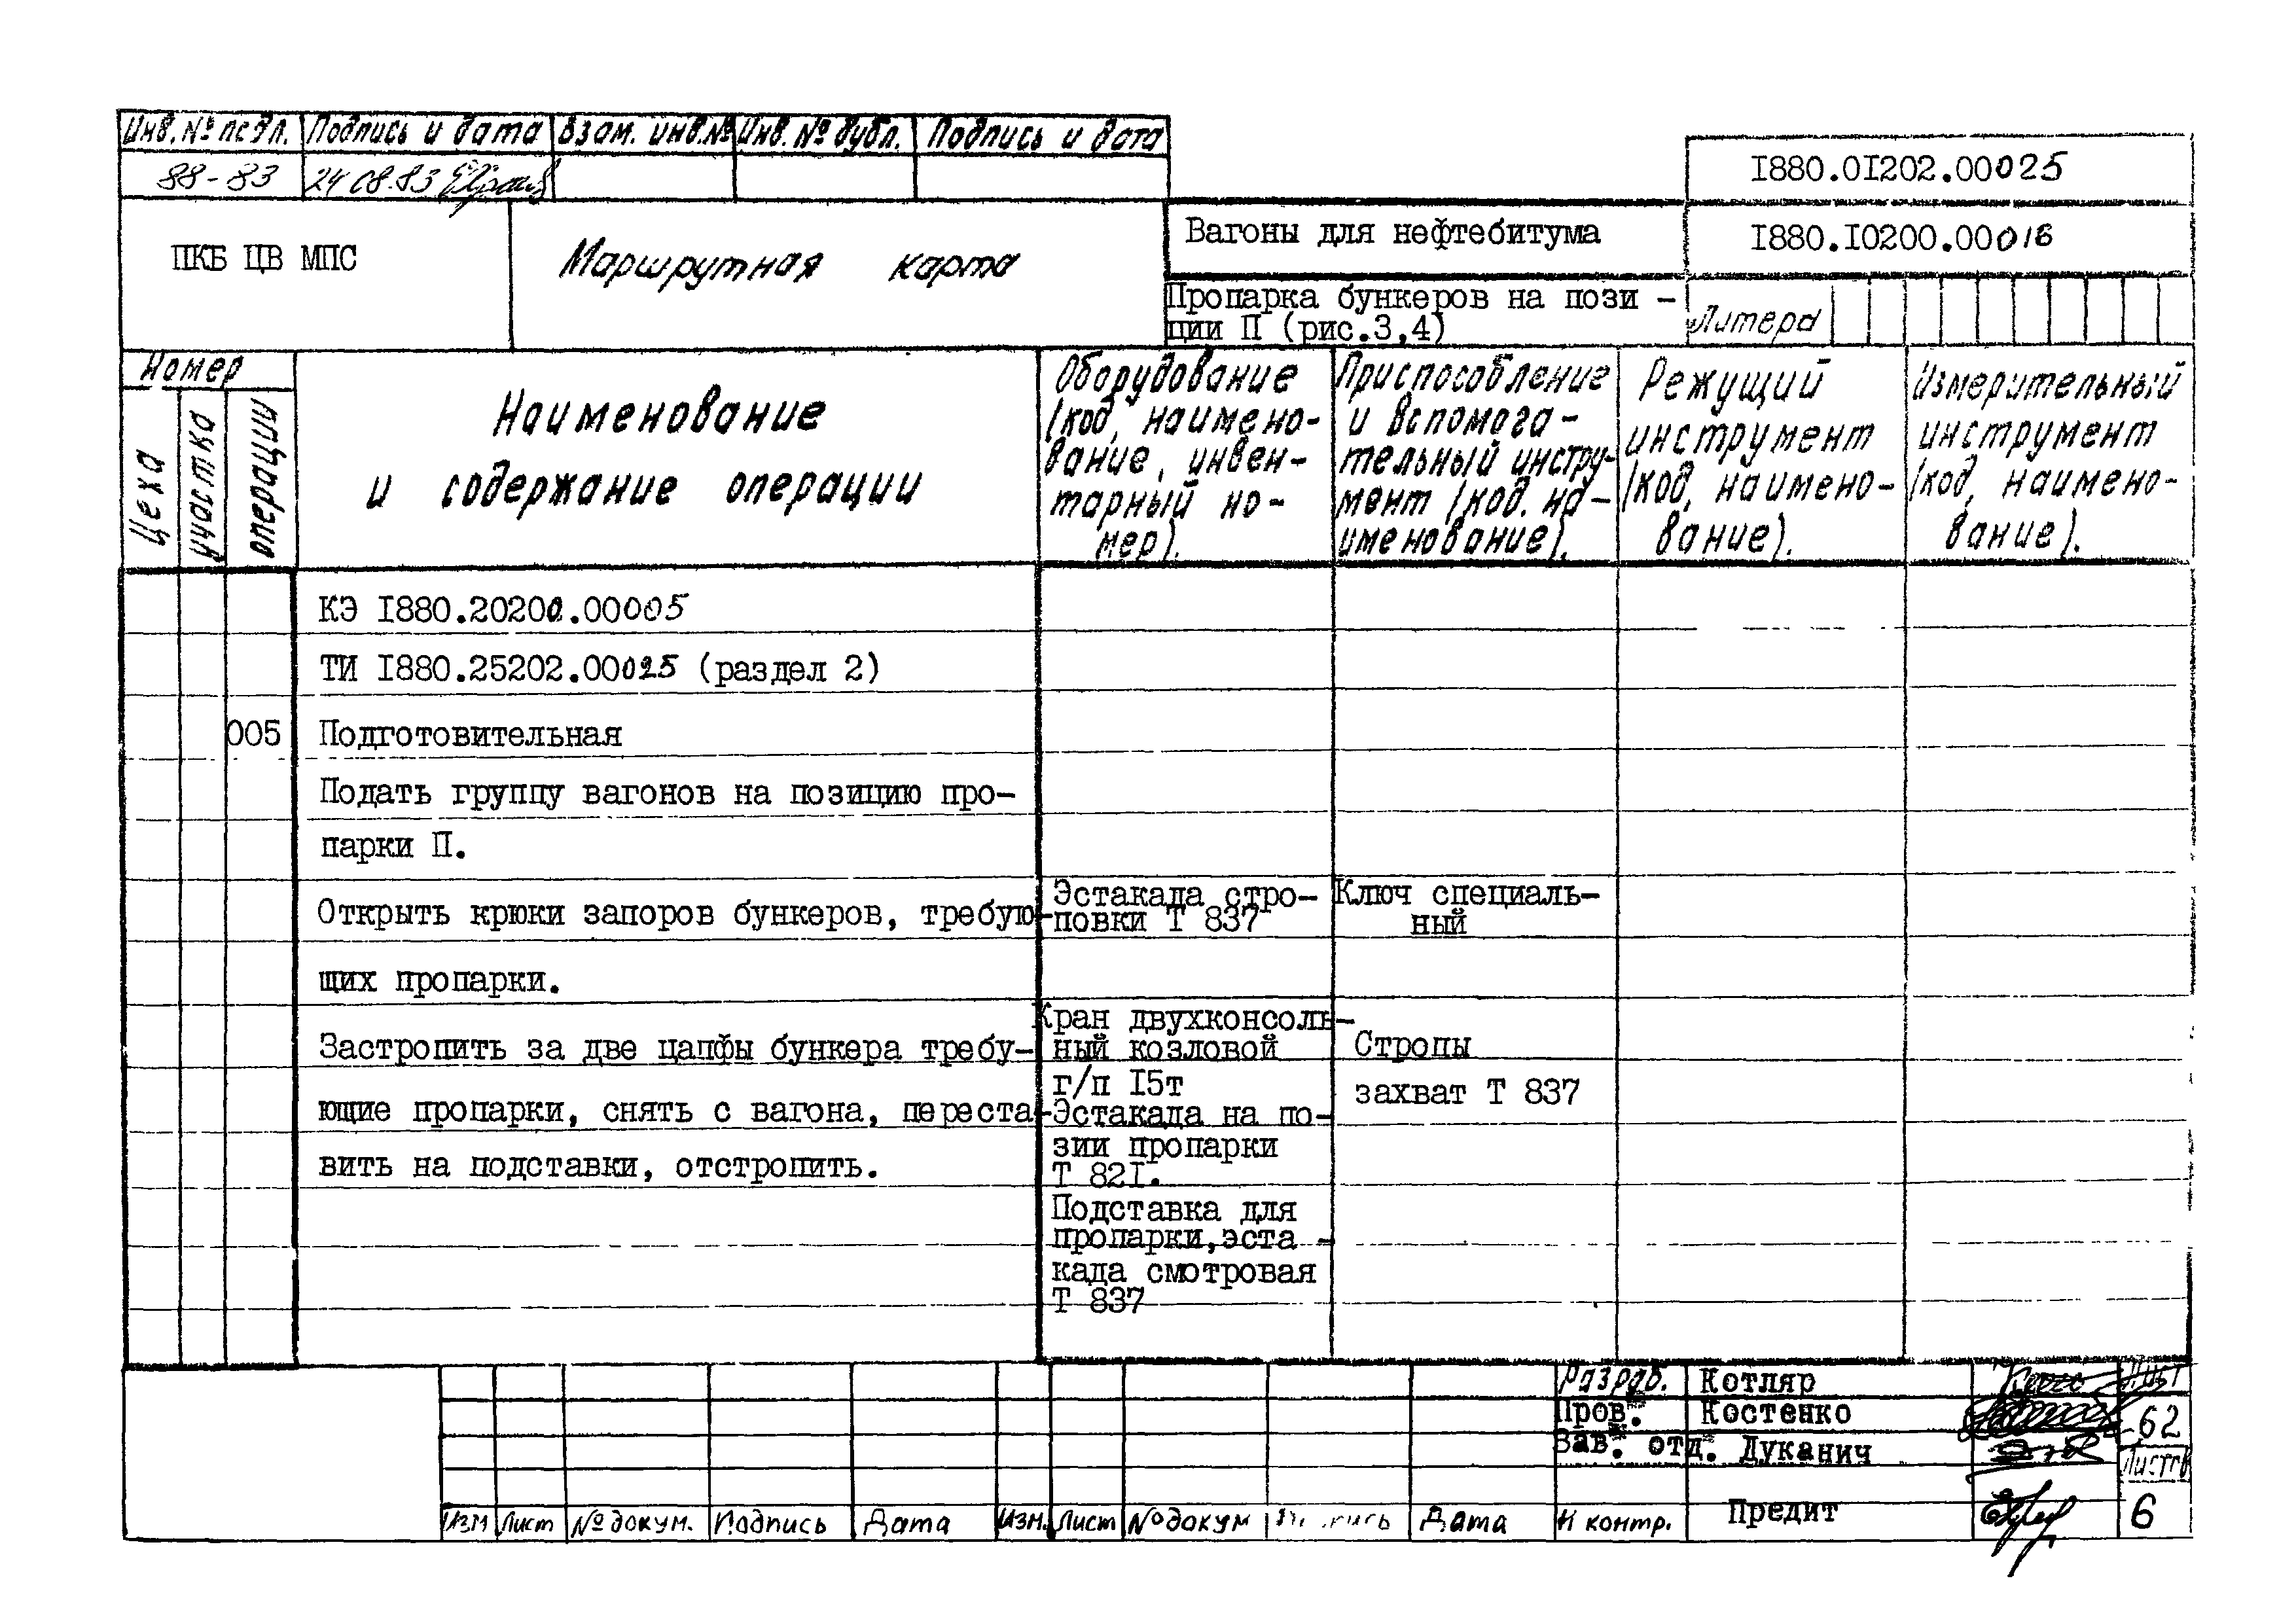 Инв. № подл. Подпись и дата Взам. инв.№ Инв. № дубл. Подпись и дата
88-83 24 08.83
I880.0I202.00025
ПКБ ЦВ МПС
Маршрутная карта
Вагоны для нефтебитума
I880.I0200.00016
Пропарка бункеров на пози -
ции П (рис.3,4)
Литера
Номер
Цеха
участка
операции
Наименование
и содержание операции
Оборудование
/код, наимено-
вание, инвен-
тарный но-
мер).
Приспособление
и вспомога-
тельный инстру-
мент /код. на-
именование).
Режущий
инструмент
/код, наимено-
вание).
Измерительный
инструмент
/код, наимено-
вание).
КЭ I880.20200.00005
ТИ I880.25202.00025 (раздел 2)
005 Подготовительная
Подать группу вагонов на позицию про-
парки П.
Открыть крюки запоров бункеров, требую-
щих пропарки.
Эстакада стро-
повки Т 837
Ключ специаль-
ный
Застропить за две цапфы бункера требу-
ющие пропарки, снять с вагона, переста-
вить на подставки, отстропить.
Кран двухконсоль-
ный козловой
г/п I5т
Эстакада на по-
зии пропарки
Т 82I.
Подставка для
пропарки,эста -
када смотровая
Т 837
Стропы
захват Т 837
Разраб. Котляр Лист
Пров. Костенко 62
Зав. отд. Дуканич Листов
Изм Лист № докум. Подпись Дата Изм. Лист № докум Дата Н контр. Предит 6